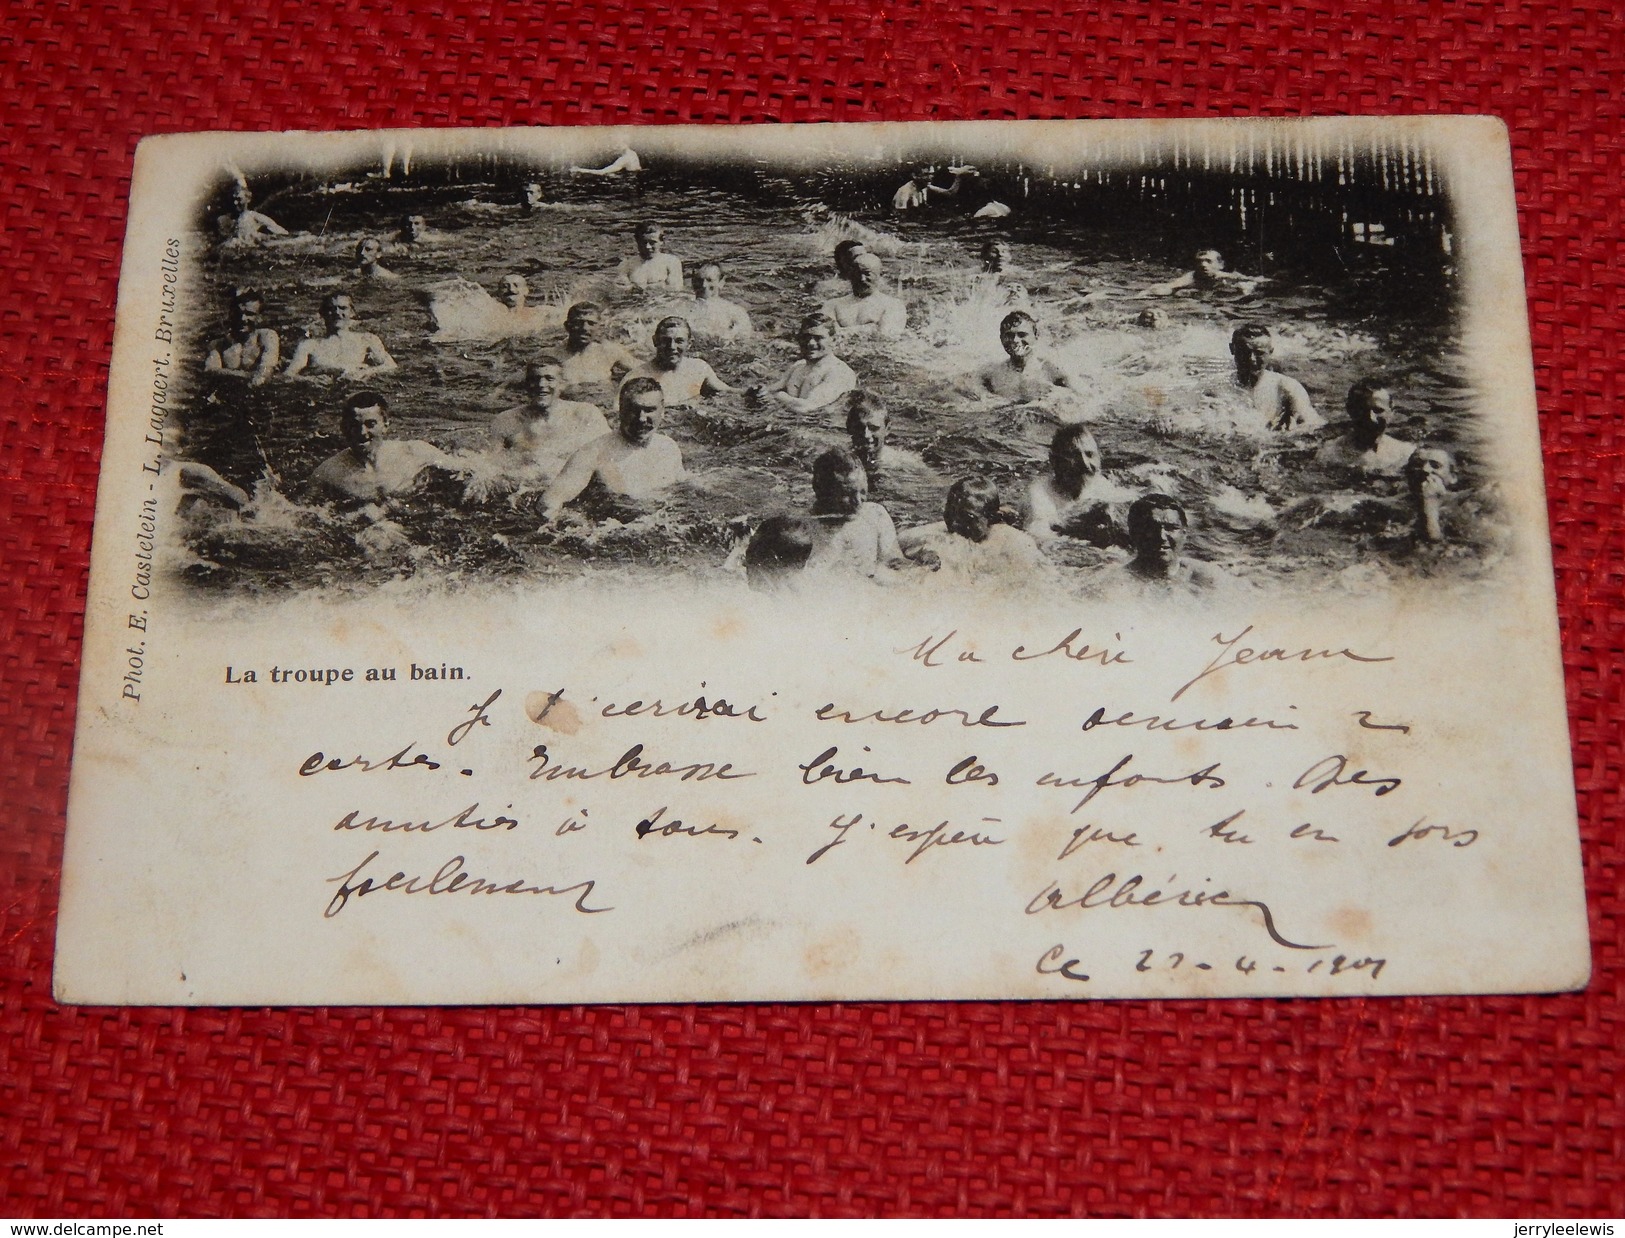 Phot. E. Castelein - L. Lagaert. Bruxelles
La troupe au bain.
Ma chère Jeanne
Je t'écrirai encore demain 2
cartes. Embrasse bien les enfants. Des
amitiés à tous. J'espère que tu en sors
facilement
Albéric
Ce 27-4-1901
© delcampe.net
jerryleelewis